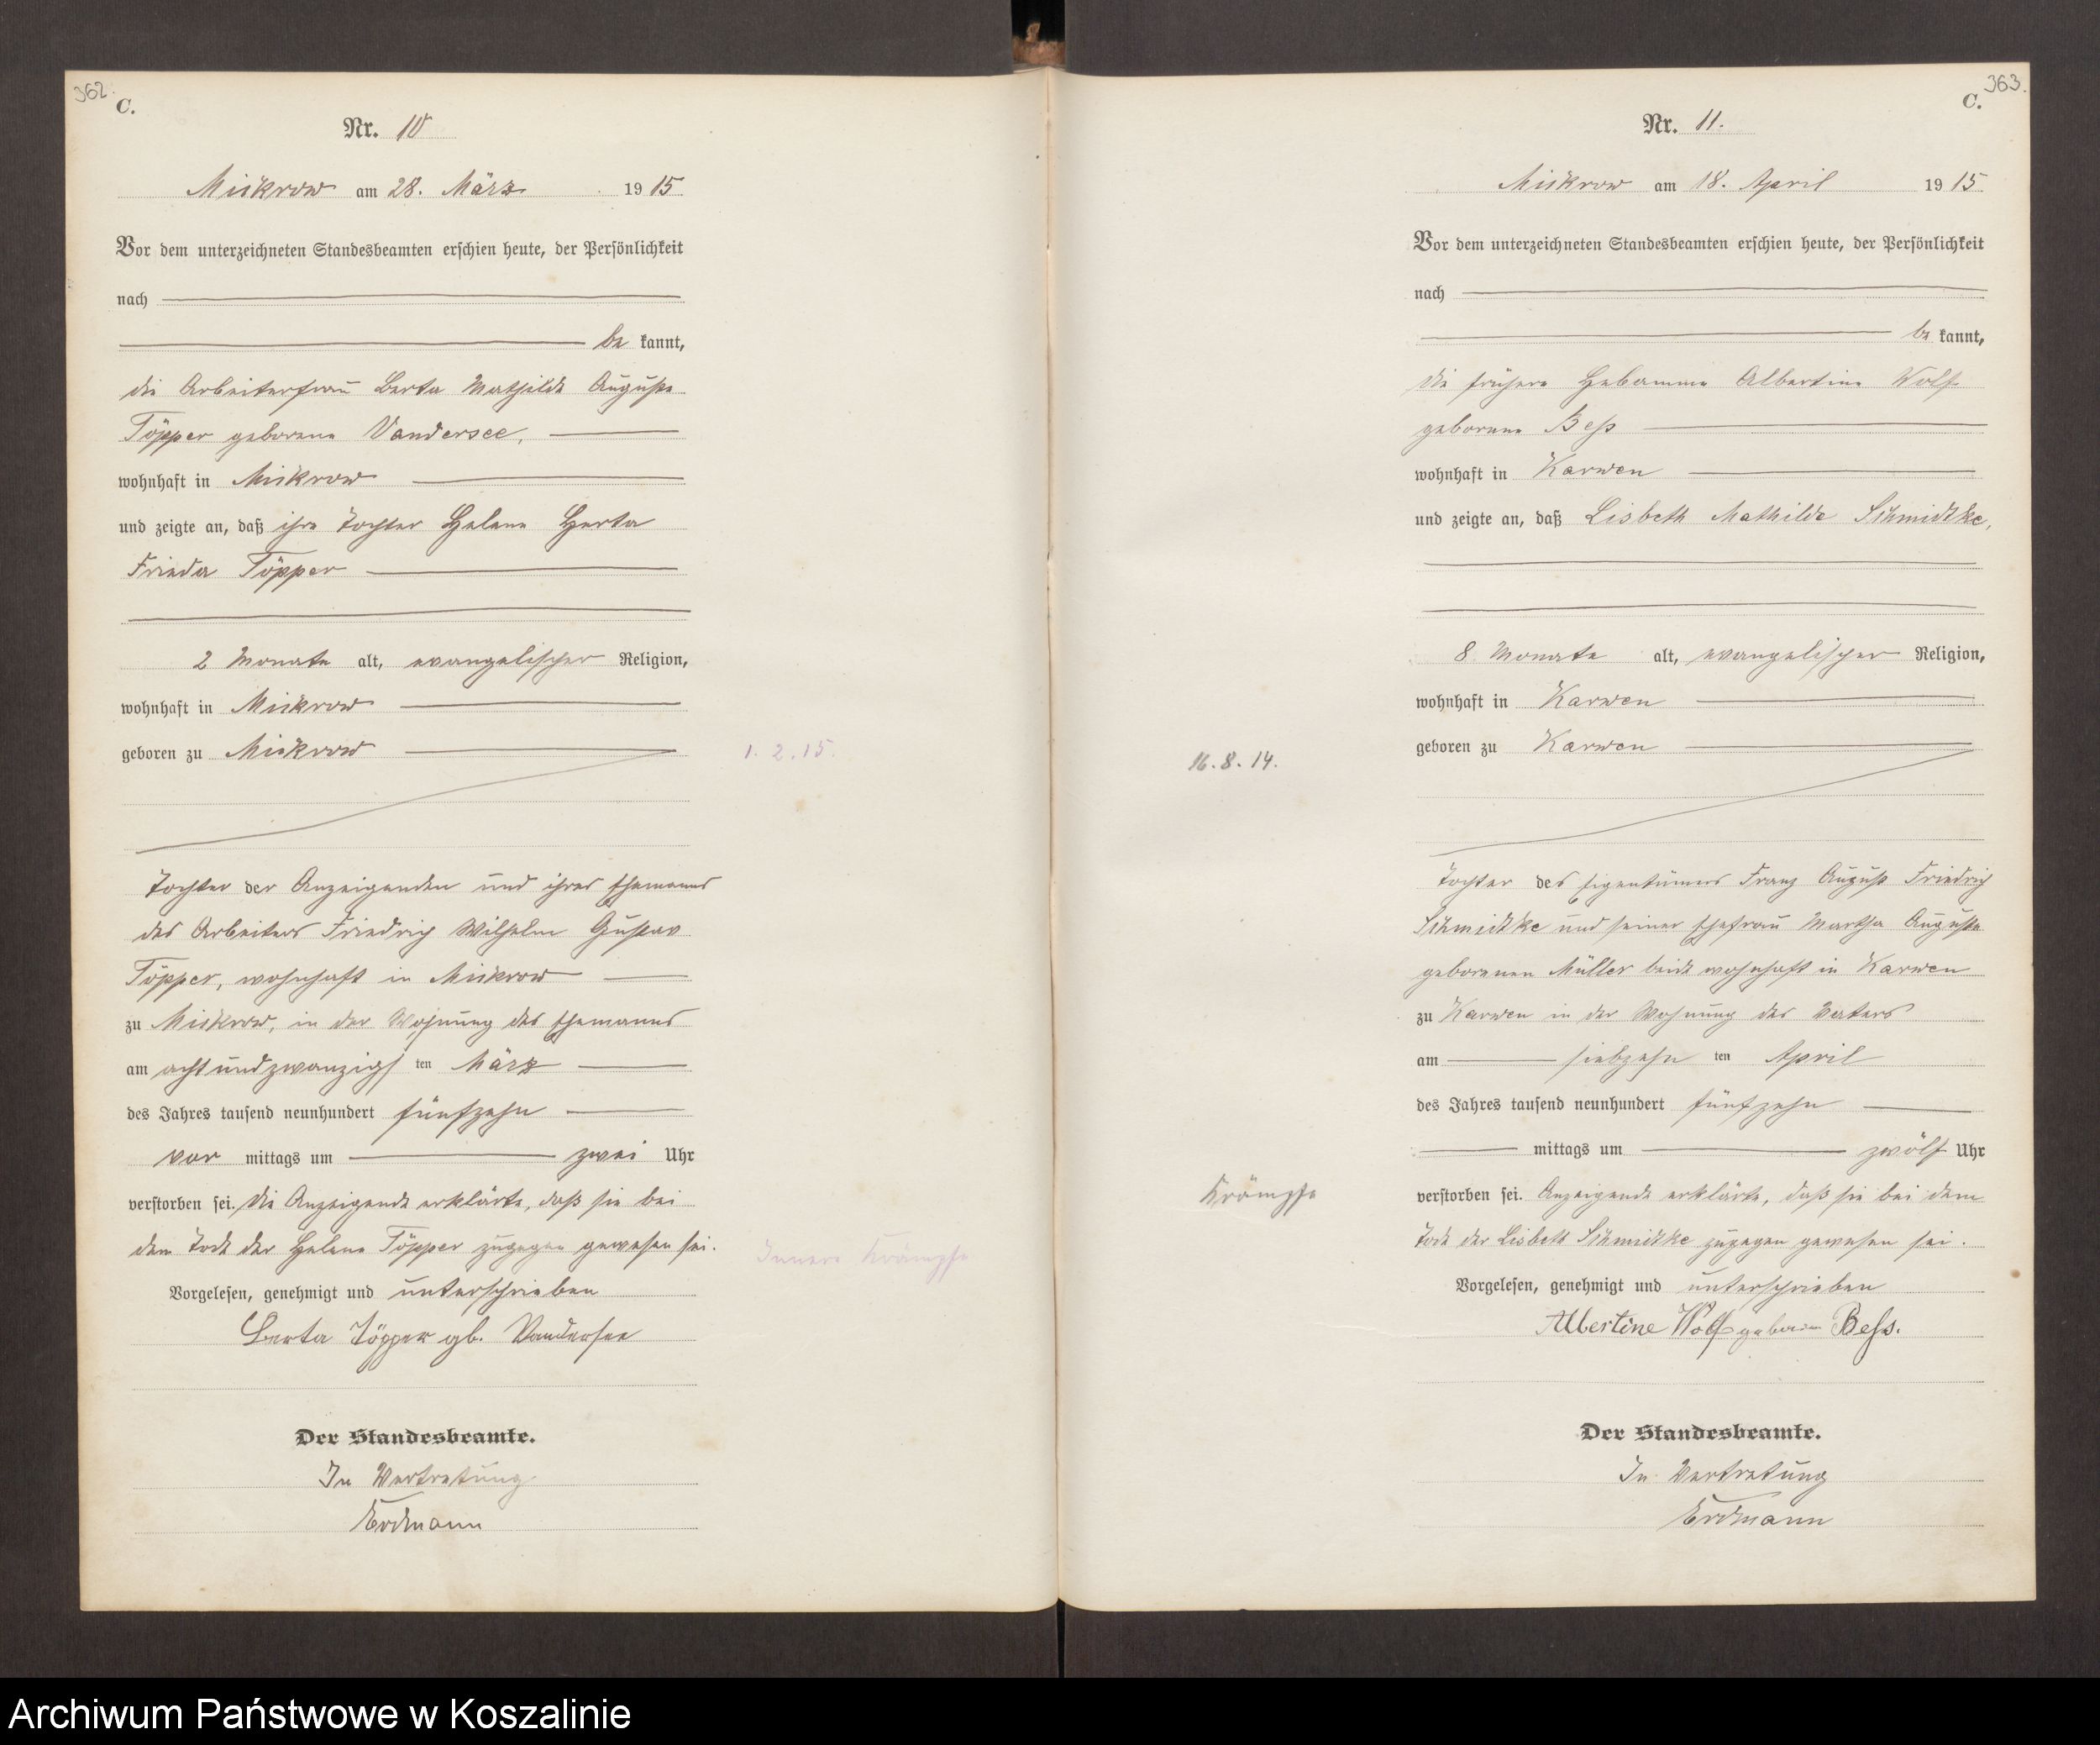 362.
C.
Nr. 10
Mickrow am 28. März 1915
Vor dem unterzeichneten Standesbeamten erschien heute, der Persönlichkeit
nach
be kannt,
die Arbeiterfrau Berta Mathilde Auguste
Töpper geborene Vandersee,
wohnhaft in Mickrow
und zeigte an, daß ihre Tochter Helene Herta
Frieda Töpper
2 Monate alt, evangelischer Religion,
wohnhaft in Mickrow
geboren zu Mickrow
1. 2. 15.
Tochter der Anzeigenden und ihres Ehemanns
des Arbeiters Friedrich Wilhelm Gustav
Töpper, wohnhaft in Mickrow
zu Mickrow, in der Wohnung des Ehemannes
am achtundzwanzigs ten März
des Jahres tausend neunhundert fünfzehn
vor mittags um zwei Uhr
verstorben sei. Die Anzeigende erklärte, daß sie bei
dem Tode der Helene Töpper zugegen gewesen sei.
Innere Krämpfe
Vorgelesen, genehmigt und unterschrieben
Berta Töpper gb. Vandersee
Der Standesbeamte.
In Vertretung
Erdmann
363.
C.
Nr. 11.
Mickrow am 18. April 1915
Vor dem unterzeichneten Standesbeamten erschien heute, der Persönlichkeit
nach
be kannt,
die frühere Hebamme Albertine Wolf
geborene Beß
wohnhaft in Karwen
und zeigte an, daß Lisbeth Mathilde Schmidtke,
8 Monate alt, evangelischer Religion,
wohnhaft in Karwen
geboren zu Karwen
16. 8. 14.
Tochter des Eigentümers Franz August Friedrich
Schmidtke und seiner Ehefrau Martha Auguste
geborenen Müller beide wohnhaft in Karwen
zu Karwen in der Wohnung des Vaters
am siebzehn ten April
des Jahres tausend neunhundert fünfzehn
mittags um zwölf Uhr
Krämpfe
verstorben sei. Anzeigende erklärte, daß sie bei dem
Tode der Lisbeth Schmidtke zugegen gewesen sei.
Vorgelesen, genehmigt und unterschrieben
Albertine Wolf geboren Beß.
Der Standesbeamte.
In Vertretung
Erdmann
Archiwum Państwowe w Koszalinie